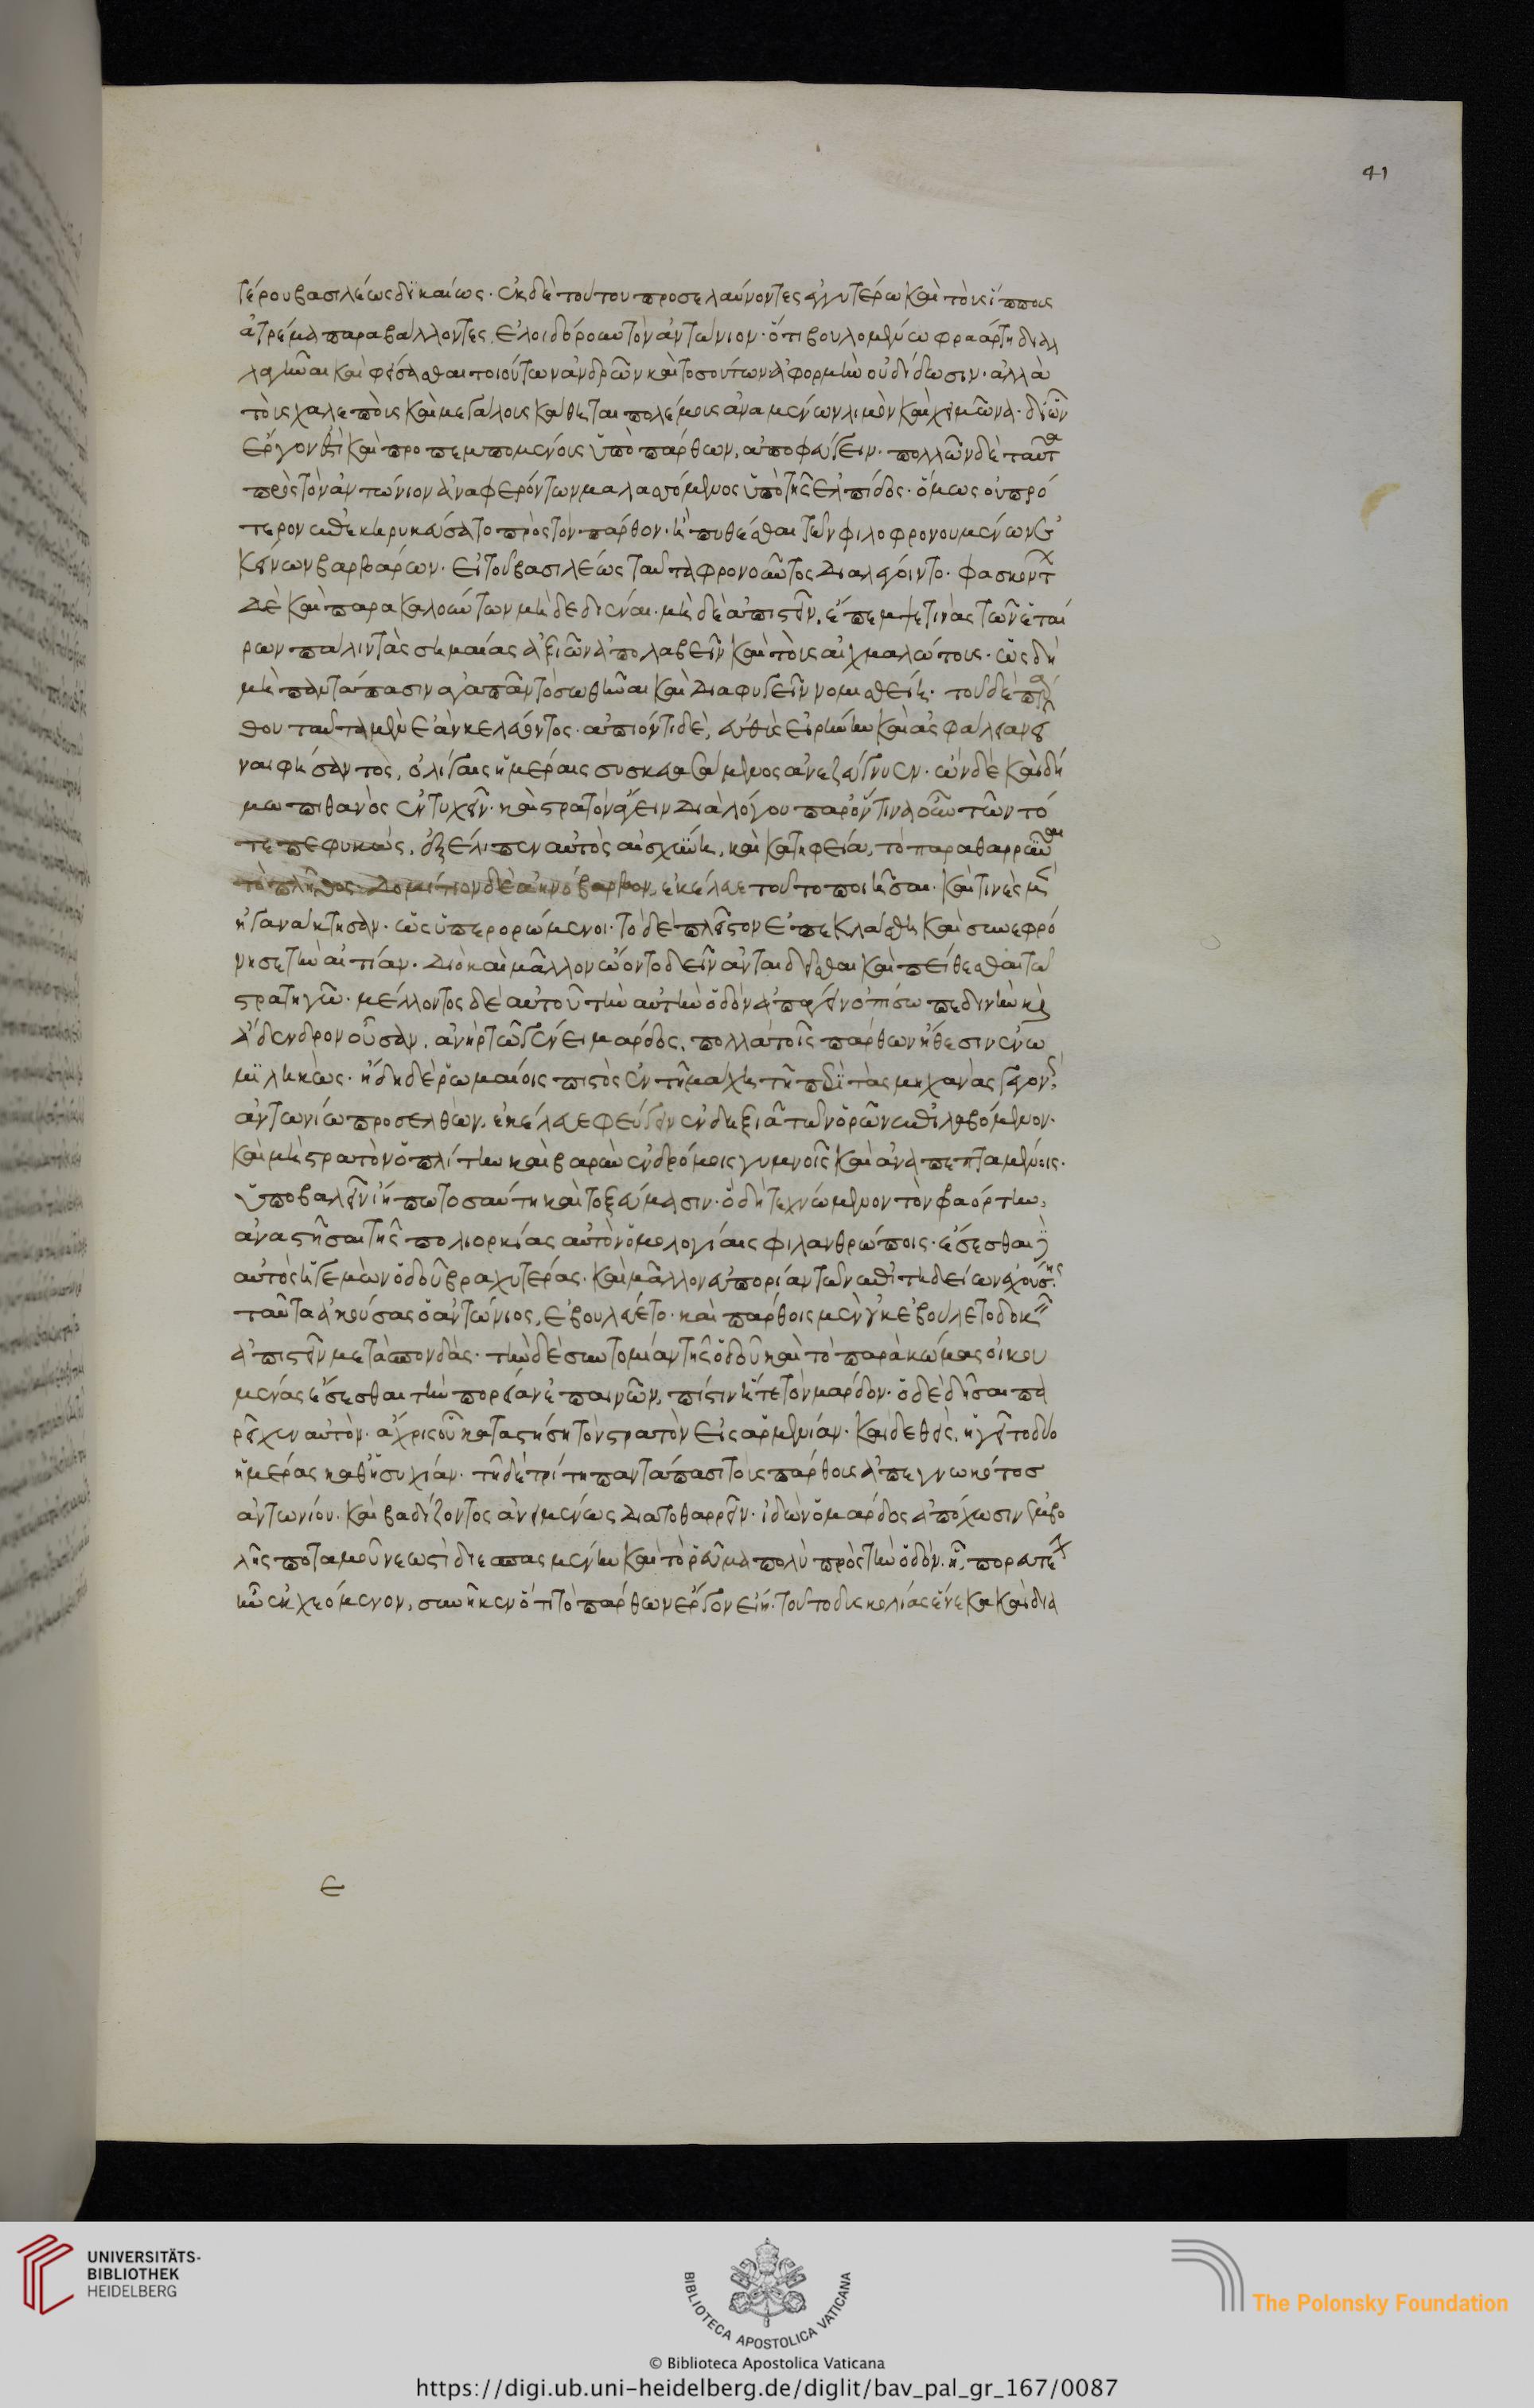 τέρου βασιλέως δϊκαίως· ἐκ δὲ τούτου προσελαύνοντες ἐγγυτέρω καὶ τοὺς ἵππους
ἀτρέμα παραβάλλοντες, ἐλοιδόρουν τὸν ἀντώνιον· ὅτι βουλομένω φραάρτη διαλ
λαγῆναι καὶ φείσασθαι τοιούτων ἀνδρῶν καὶ τοσούτων ἀφορμὴν οὐ δίδωσιν· ἀλλὰ
τοὺς χαλεποὺς καὶ μεγάλους κάθηται πολεμίους ἀναμένων λιμὸν καὶ χειμῶνα· δι' ὧν
ἔργον ἐστὶ καὶ προπεμπομένοις ὑπὸ πάρθων, ἀποφυγεῖν· πολλῶν δὲ ταῦτα
πρὸς τὸν ἀντώνιον ἀναφερόντων μαλασσόμενος ὑπὸ τῆς ἐλπίδος· ὅμως οὐ πρό
τερον ἐπεκηρυκεύσατο πρὸς τὸν πάρθον· ἢ πυθέσθαι τῶν φιλοφρονουμένων ἐ
κείνων βαρβάρων· εἰ τοῦ βασιλέως ταῦτα φρονοῦντος διαλέγοιντο· φασκόντων
δὲ καὶ παρακαλούντων μὴ δεδιέναι· μὴ δὲ ἀπιστεῖν, ἔπεμψέ τινας τῶν ἑταί
ρων πάλιν τὰς σημαίας ἀξιῶν ἀπολαβεῖν καὶ τοὺς αἰχμαλώτους· ὡς δὴ
μὴ παντάπασιν ἀγαπᾶν τὸ σωθῆναι καὶ διαφυγεῖν νομισθείη· τοῦ δὲ πάρ
θου ταῦτα μὲν ἐᾶν κελεύοντος· ἀπιόντι δὲ, εὐθὺς εἰρήνην καὶ ἀσφάλειαν εἶ
ναι φήσαντος, ὀλίγαις ἡμέραις συσκευασάμενος ἀνεζεύγνυεν· ὢν δὲ καὶ δή
μω πιθανὸς ἐντυχεῖν· καὶ στρατὸν ἄγειν διὰ λόγου παρ' ὁντιναοῦν τῶν τό
τε πεφυκὼς, ἐξέλιπεν αὐτὸς αἰσχύνη, καὶ κατηφεία, τὸ παραθαρρῦναι
τὸ πλῆθος· δομίτιον δὲ αἰνόβαρβον, ἐκέλευε τοῦτο ποιῆσαι· καὶ τινὲς μὲν
ἠγανάκτησαν· ὡς ὑπερορώμενοι· τὸ δὲ πλεῖστον ἐπεκλάσθη καὶ συνεφρό
νησε τὴν αἰτίαν· διὸ καὶ μᾶλλον ᾤοντο δεῖν ἀνταιδεῖσθαι καὶ πείθεσθαι τῶ
στρατηγῶ· μέλλοντος δὲ αὐτοῦ τὴν αὐτὴν ὁδὸν ἀπάγειν ὀπίσω πεδινὴν καὶ
ἄδενδρον οὖσαν, ἀνὴρ τῶ γένει μάρδος, πολλὰ τοῖς πάρθων ἤθεσιν ἐνω
μϊληκὼς· ἤδη δὲ ῥωμαίοις πιστὸς ἐν τῆ μάχη τῆ περὶ τὰς μηχανὰς γεγονὼς,
ἀντωνίω προσελθὼν, ἐκέλευε φεύγειν ἐν δεξιᾶ τῶν ὀρῶν ἐπιλαβόμενον·
καὶ μὴ στρατὸν ὁπλίτην καὶ βαρὺν ἐν δρόμοις γυμνοῖς καὶ ἀναπεπταμένοις·
ὑποβαλεῖν ἵππω τοσαύτη καὶ τοξεύμασιν· ὃ δὴ τεχνώμενον τὸν φαόρτην,
ἀναστῆσαι τῆς πολιορκίας αὐτὸν ὁμολογίαις φιλανθρώποις· ἔσεσθαι δὲ
αὐτὸς ἡγεμὼν ὁδοῦ βραχυτέρας· καὶ μᾶλλον εὐπορίαν τῶν ἐπιτηδείων ἐχούσης·
ταῦτα ἀκούσας ὁ ἀντώνιος, ἐβουλεύετο· καὶ πάρθοις μὲν οὐκ ἐβούλετο δοκεῖν
ἀπιστεῖν μετὰ σπονδὰς· τὴν δὲ συντομίαν τῆς ὁδοῦ καὶ τὸ παρὰ κώμας οἰκου
μένας ἔσεσθαι τὴν πορείαν ἐπαινῶν, πίστιν ᾔτει τὸν μάρδον· ὁ δὲ δῆσαι πα
ρεῖχεν αὐτὸν· ἄχρις οὗ καταστήση τὸν στρατὸν εἰς ἀρμενίαν· καὶ δεθεὶς, ἡγεῖτο δύο
ἡμέρας καθ' ἡσυχίαν· τῆ δὲ τρίτη παντάπασι τοὺς πάρθους ἀπεγνωκότος
ἀντωνίου· καὶ βαδίζοντος ἀνειμένως διὰ τὸ θαρρεῖν· ἰδὼν ὁ μάρδος ἀπόχωσιν ἐμβο
λῆς ποταμοῦ νεωστὶ διεσπασμένην καὶ τὸ ῥεῦμα πολὺ πρὸς τὴν ὁδὸν, ἧ πορευτέον
ἦν ἐκχεόμενον, συνῆκεν ὅτι τὸ πάρθων ἔργον εἴη· τοῦτο δυσκολίας ἕνεκα καὶ δια
ε
41
UNIVERSITÄTS-
BIBLIOTHEK
HEIDELBERG
BIBLIOTECA APOSTOLICA VATICANA
The Polonsky Foundation
© Biblioteca Apostolica Vaticana
https://digi.ub.uni-heidelberg.de/diglit/bav_pal_gr_167/0087